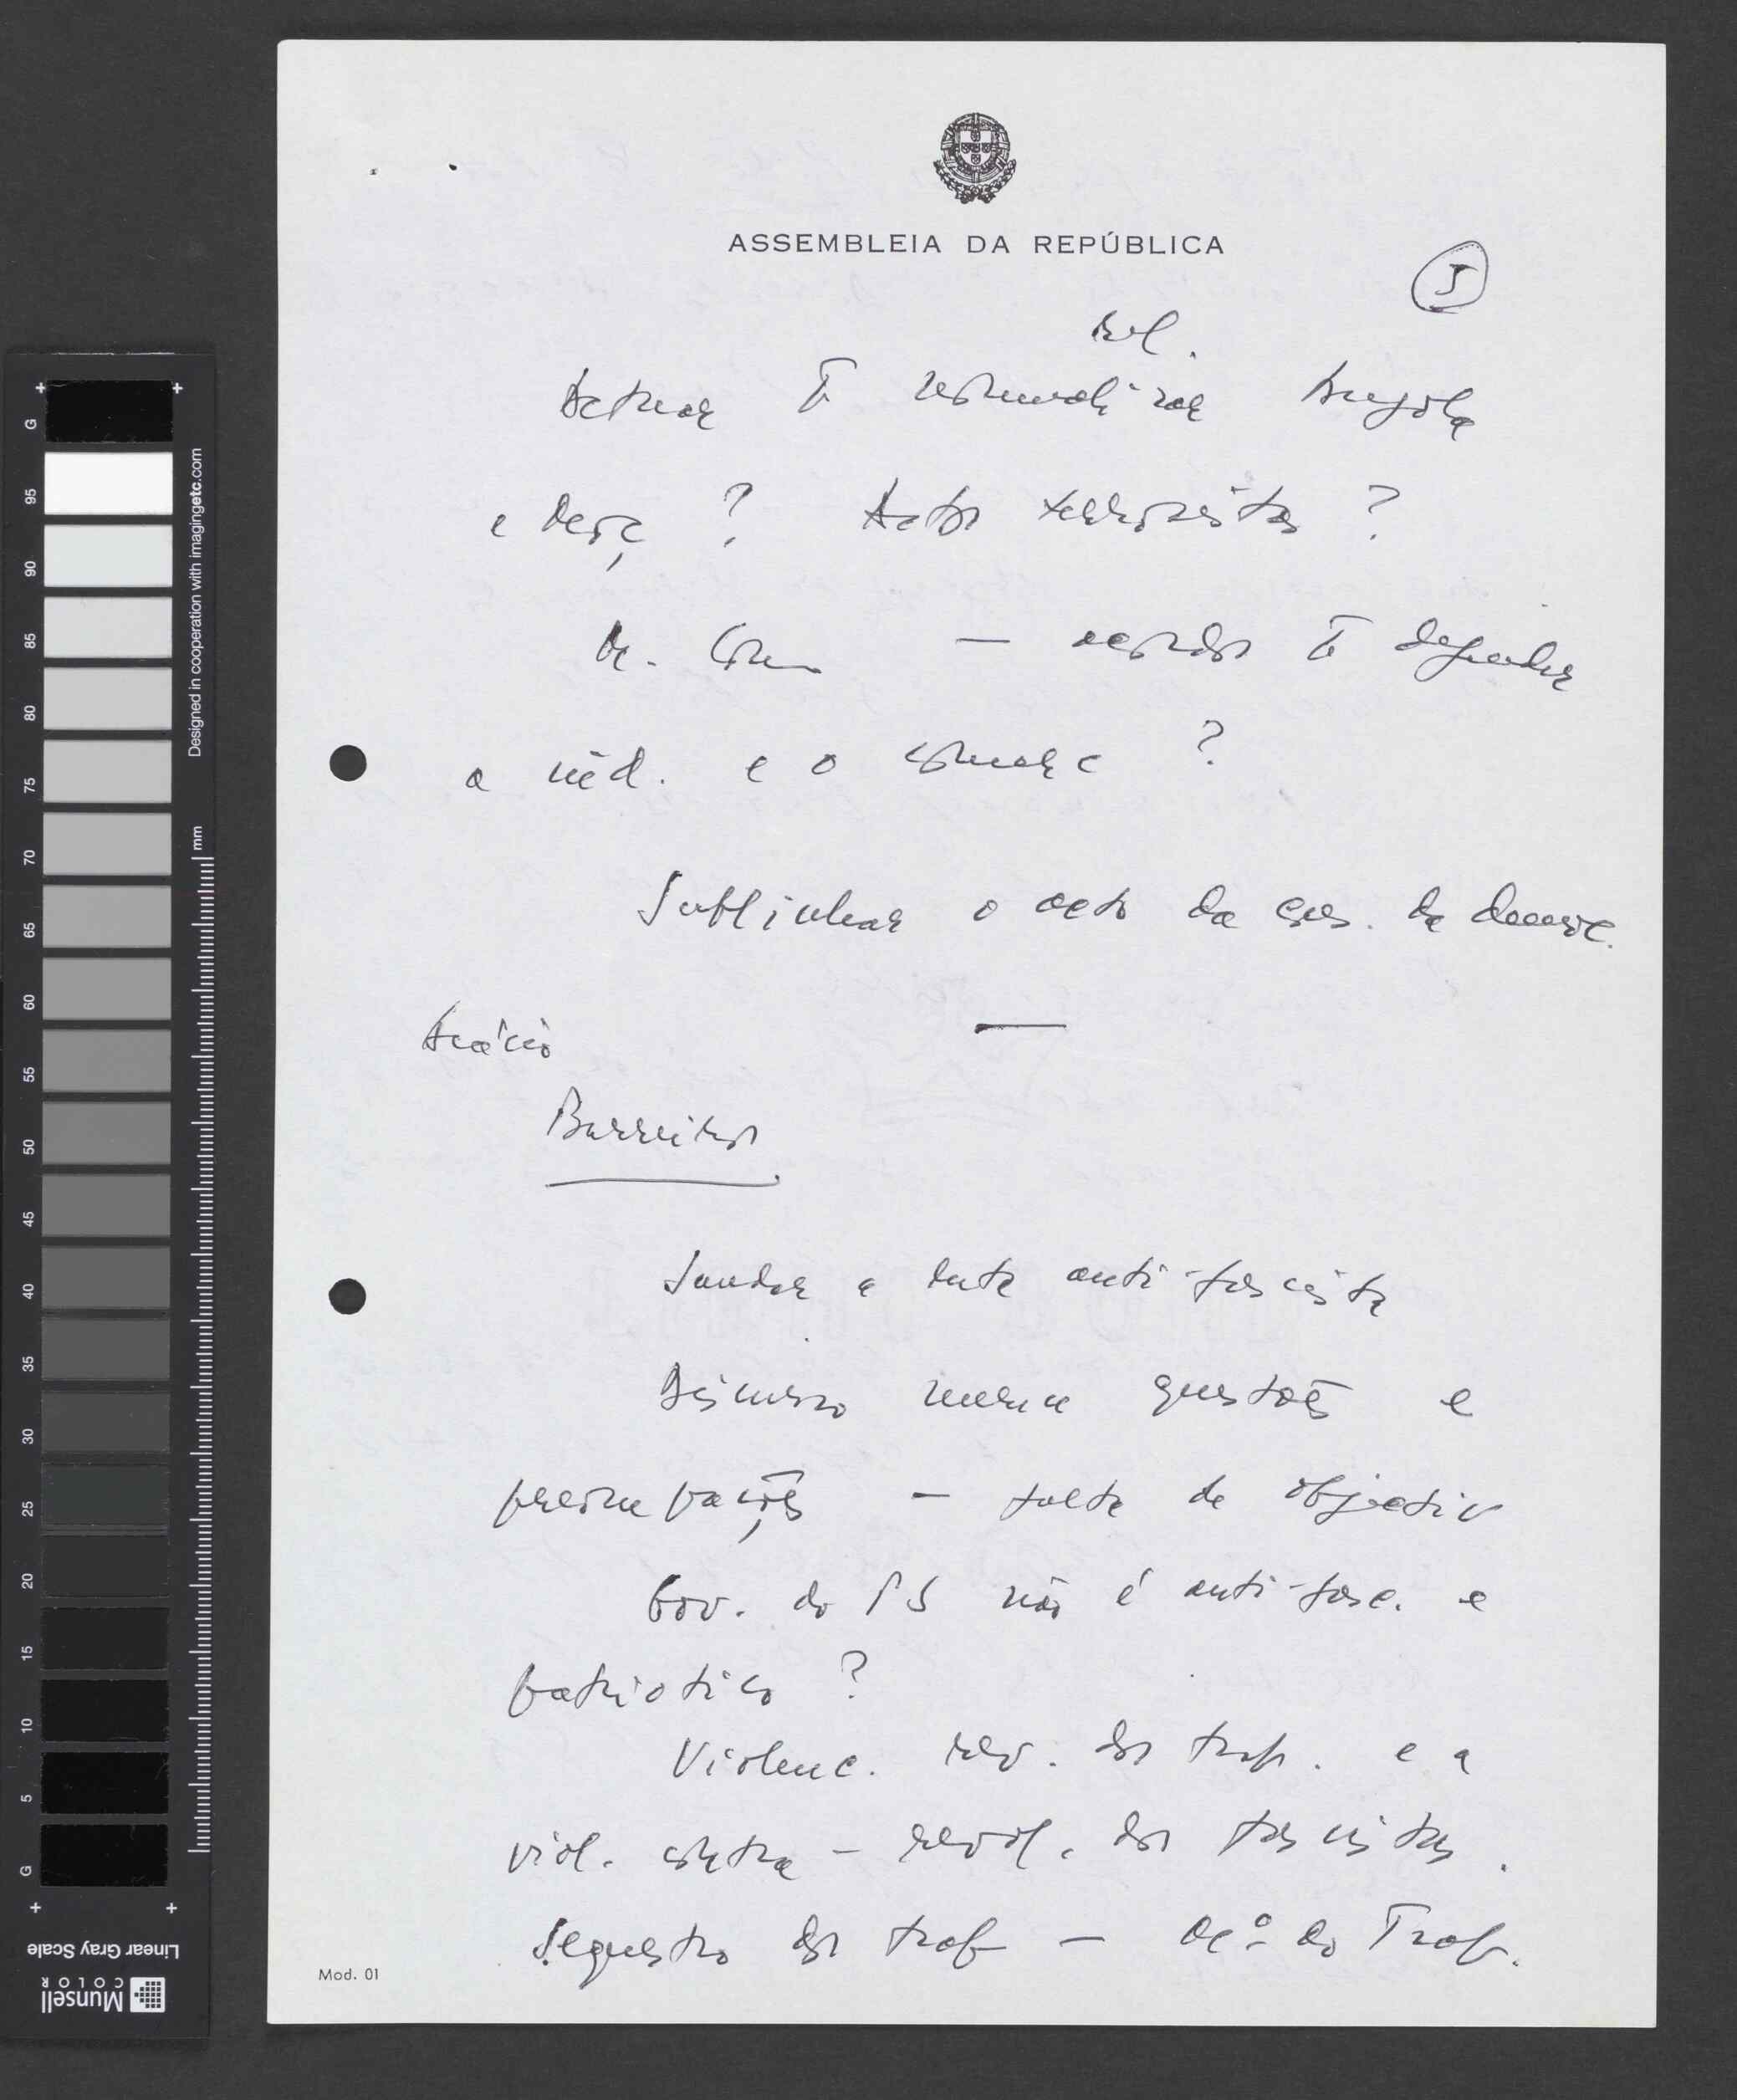 ASSEMBLEIA DA REPÚBLICA
5
rel.
Actuar normalizar Angola
e ? Actos terroristas ?
M. — acordos defender
a ind. e o ?
Sublinhar o acto da de democ.
Acácio
Barreiros
Saudar a luta anti-fascista
Discurso merece questões e
preocupações — falta de objectiv
Gov. do PS não é anti-fasc. e
patriotico ?
Violenc. rev. dos trab. e a
viol. contra-revol. dos fascistas.
Sequestro dos trab — do Trab.
Mod. 01
Designed in cooperation with imagingetc.com
mm
G
95
90
85
80
75
70
65
60
55
50
45
40
35
30
25
20
15
10
5
G
Linear Gray Scale
Munsell
COLOR